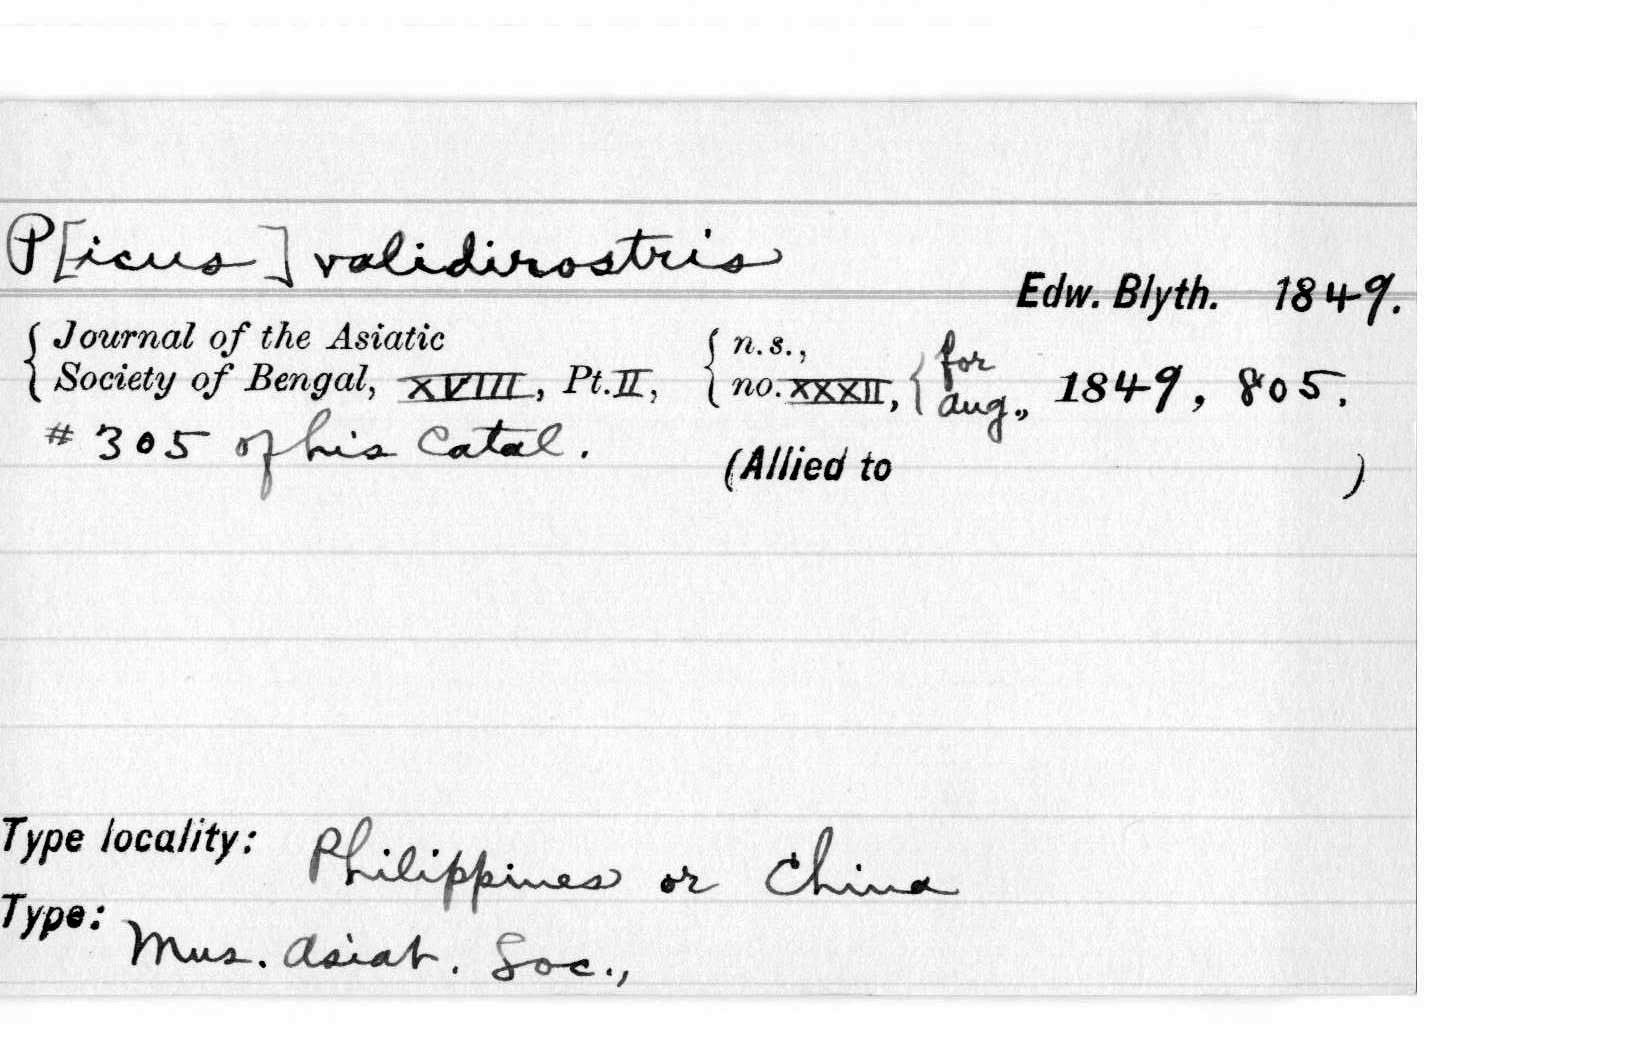 P[icus] validirostris
Edw. Blyth. 1849.
{ Journal of the Asiatic { n.s., { for
{ Society of Bengal, XVIII, Pt. II, { no. XXXII, { aug., 1849, 805.
# 305 of his Catal.
(Allied to )
Type locality: Philippines or China
Type: Mus. Asiat. Soc.,